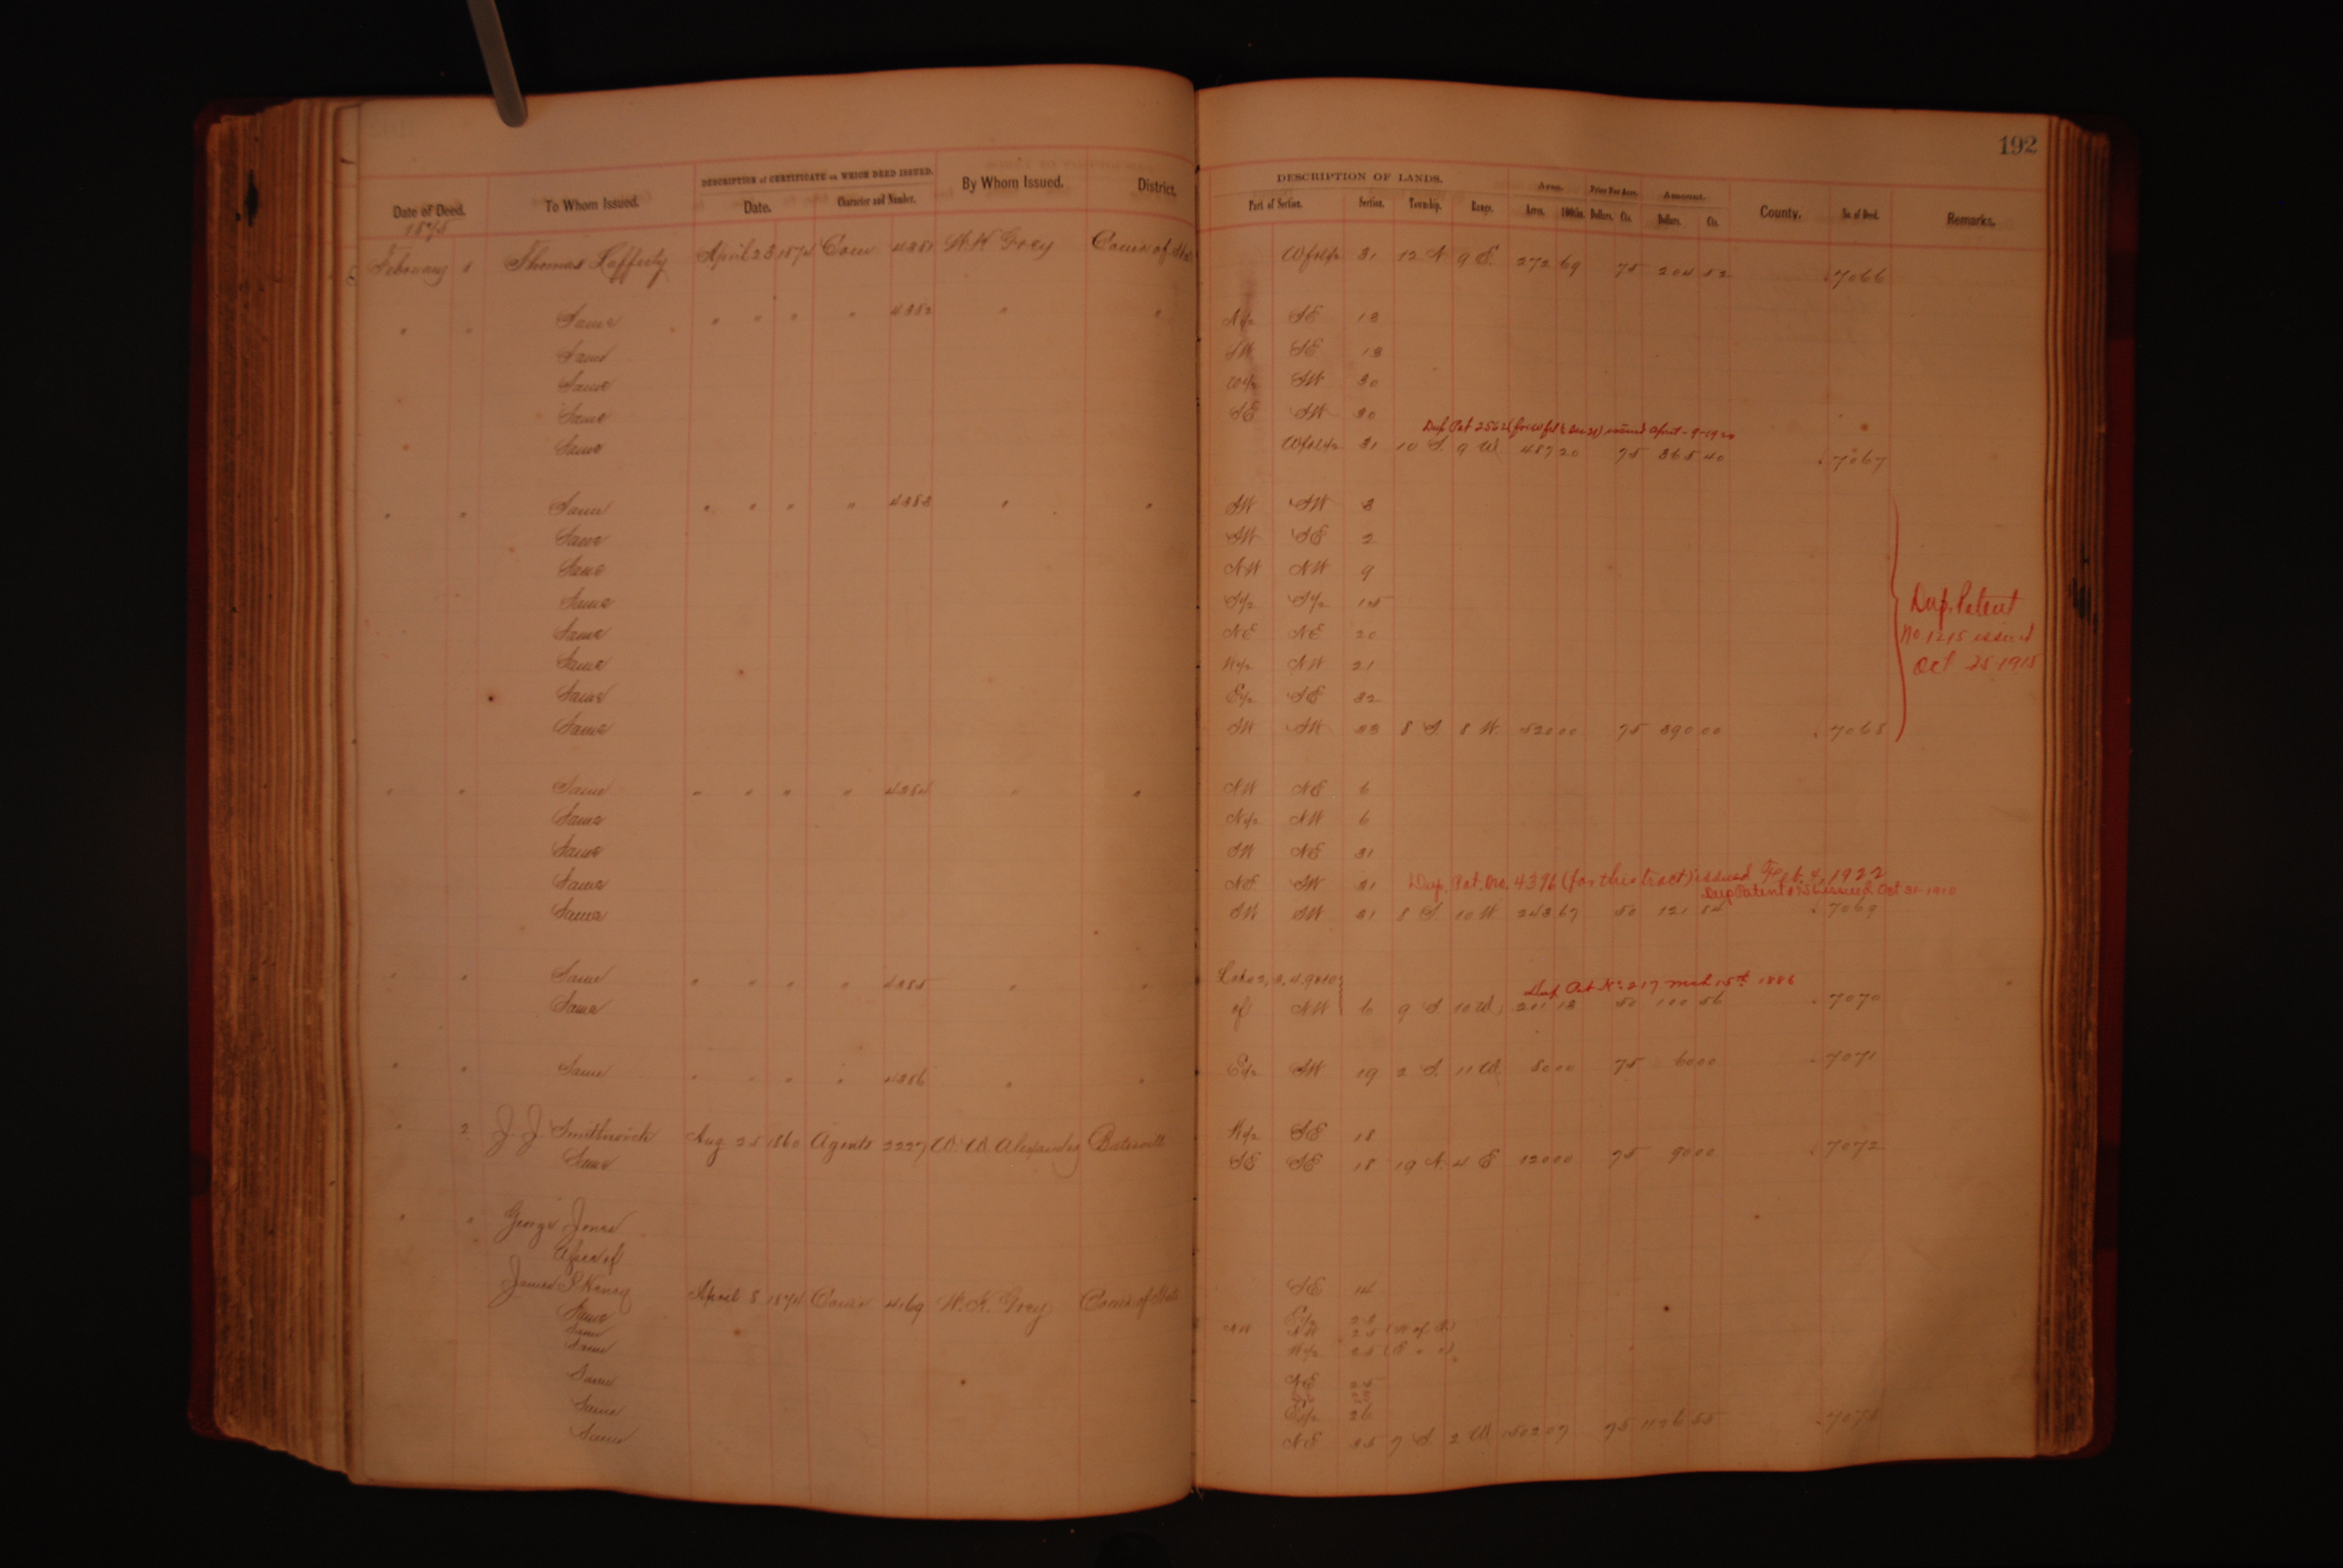 192
DESCRIPTION of CERTIFICATE on WHICH DEED ISSUED. DESCRIPTION OF LANDS. Area. Price Per Acre. Amount.
Date of Deed. To Whom Issued. Date. Character and Number. By Whom Issued. District. Part of Section. Section. Township. Range. Acres. 100ths. Dollars. Cts. Dollars. Cts. County. No. of Deed. Remarks.
1875
February 1 Thomas Lafferty April 23 1874 Com 4381 W. R. Grey Comr of State Wfrl½ 31 12 N. 9 E. 272 69 75 204 52 7066
" " Same " " " " 4382 " " N½ SE 13
Same SW SE 13
Same W½ SW 30
Same SE SW 30
Dup. Pat 2562 (for W frl ½ Sec 31) issued April-9-1920
Same Wfrl½ 31 10 S. 9 W. 487 20 75 365 40 7067
" " Same " " " " 4383 " " SW SW 3
Same SW SE 2
Same NW NW 9
Same S½ S½ 15
Same NE NE 20
Same W½ NW 21
Same E½ SE 32
Same SW SW 33 8 S. 8 W. 520 00 75 390 00 7068
Dup. Patent
No 1215 issued
Oct 25-1915
" " Same " " " " 4384 " " NW NE 6
Same N½ NW 6
Same SW NE 31
Same NE SW 31 Dup. Pat. No. 4396 (for this tract) issued Feb. 4, 1922
Dup Patent issued Oct 31-1910
Same SW SW 31 8 S. 10 W. 243 67 50 121 84 7069
" " Same " " " " 4385 " " Lots 2, 3, 4, 9 & 10
Dup Pat No 217 Mch 15th 1886
Same of NW 6 9 S. 10 W. 201 13 50 100 56 7070
" " Same " " " " 4386 " " E½ SW 19 2 S. 11 W. 80 00 75 60 00 7071
" 2 J. J. Smithwick Aug 25 1860 Agents 2227 W. W. Alexander Batesville W½ SE 18
Same SE SE 18 19 N. 4 E 120 00 75 90 00 7072
" " George Jones
Asnee of
James P. Henry April 8 1874 Comr 4169 W. R. Grey Comr of State SE 14
Same E½
Same NW NW 25 (W of B)
Same W½ 25 (E " ")
Same NE
Same E½ 26
Same NE 35 7 S 2 W. 1502 07 75 1126 55 7073